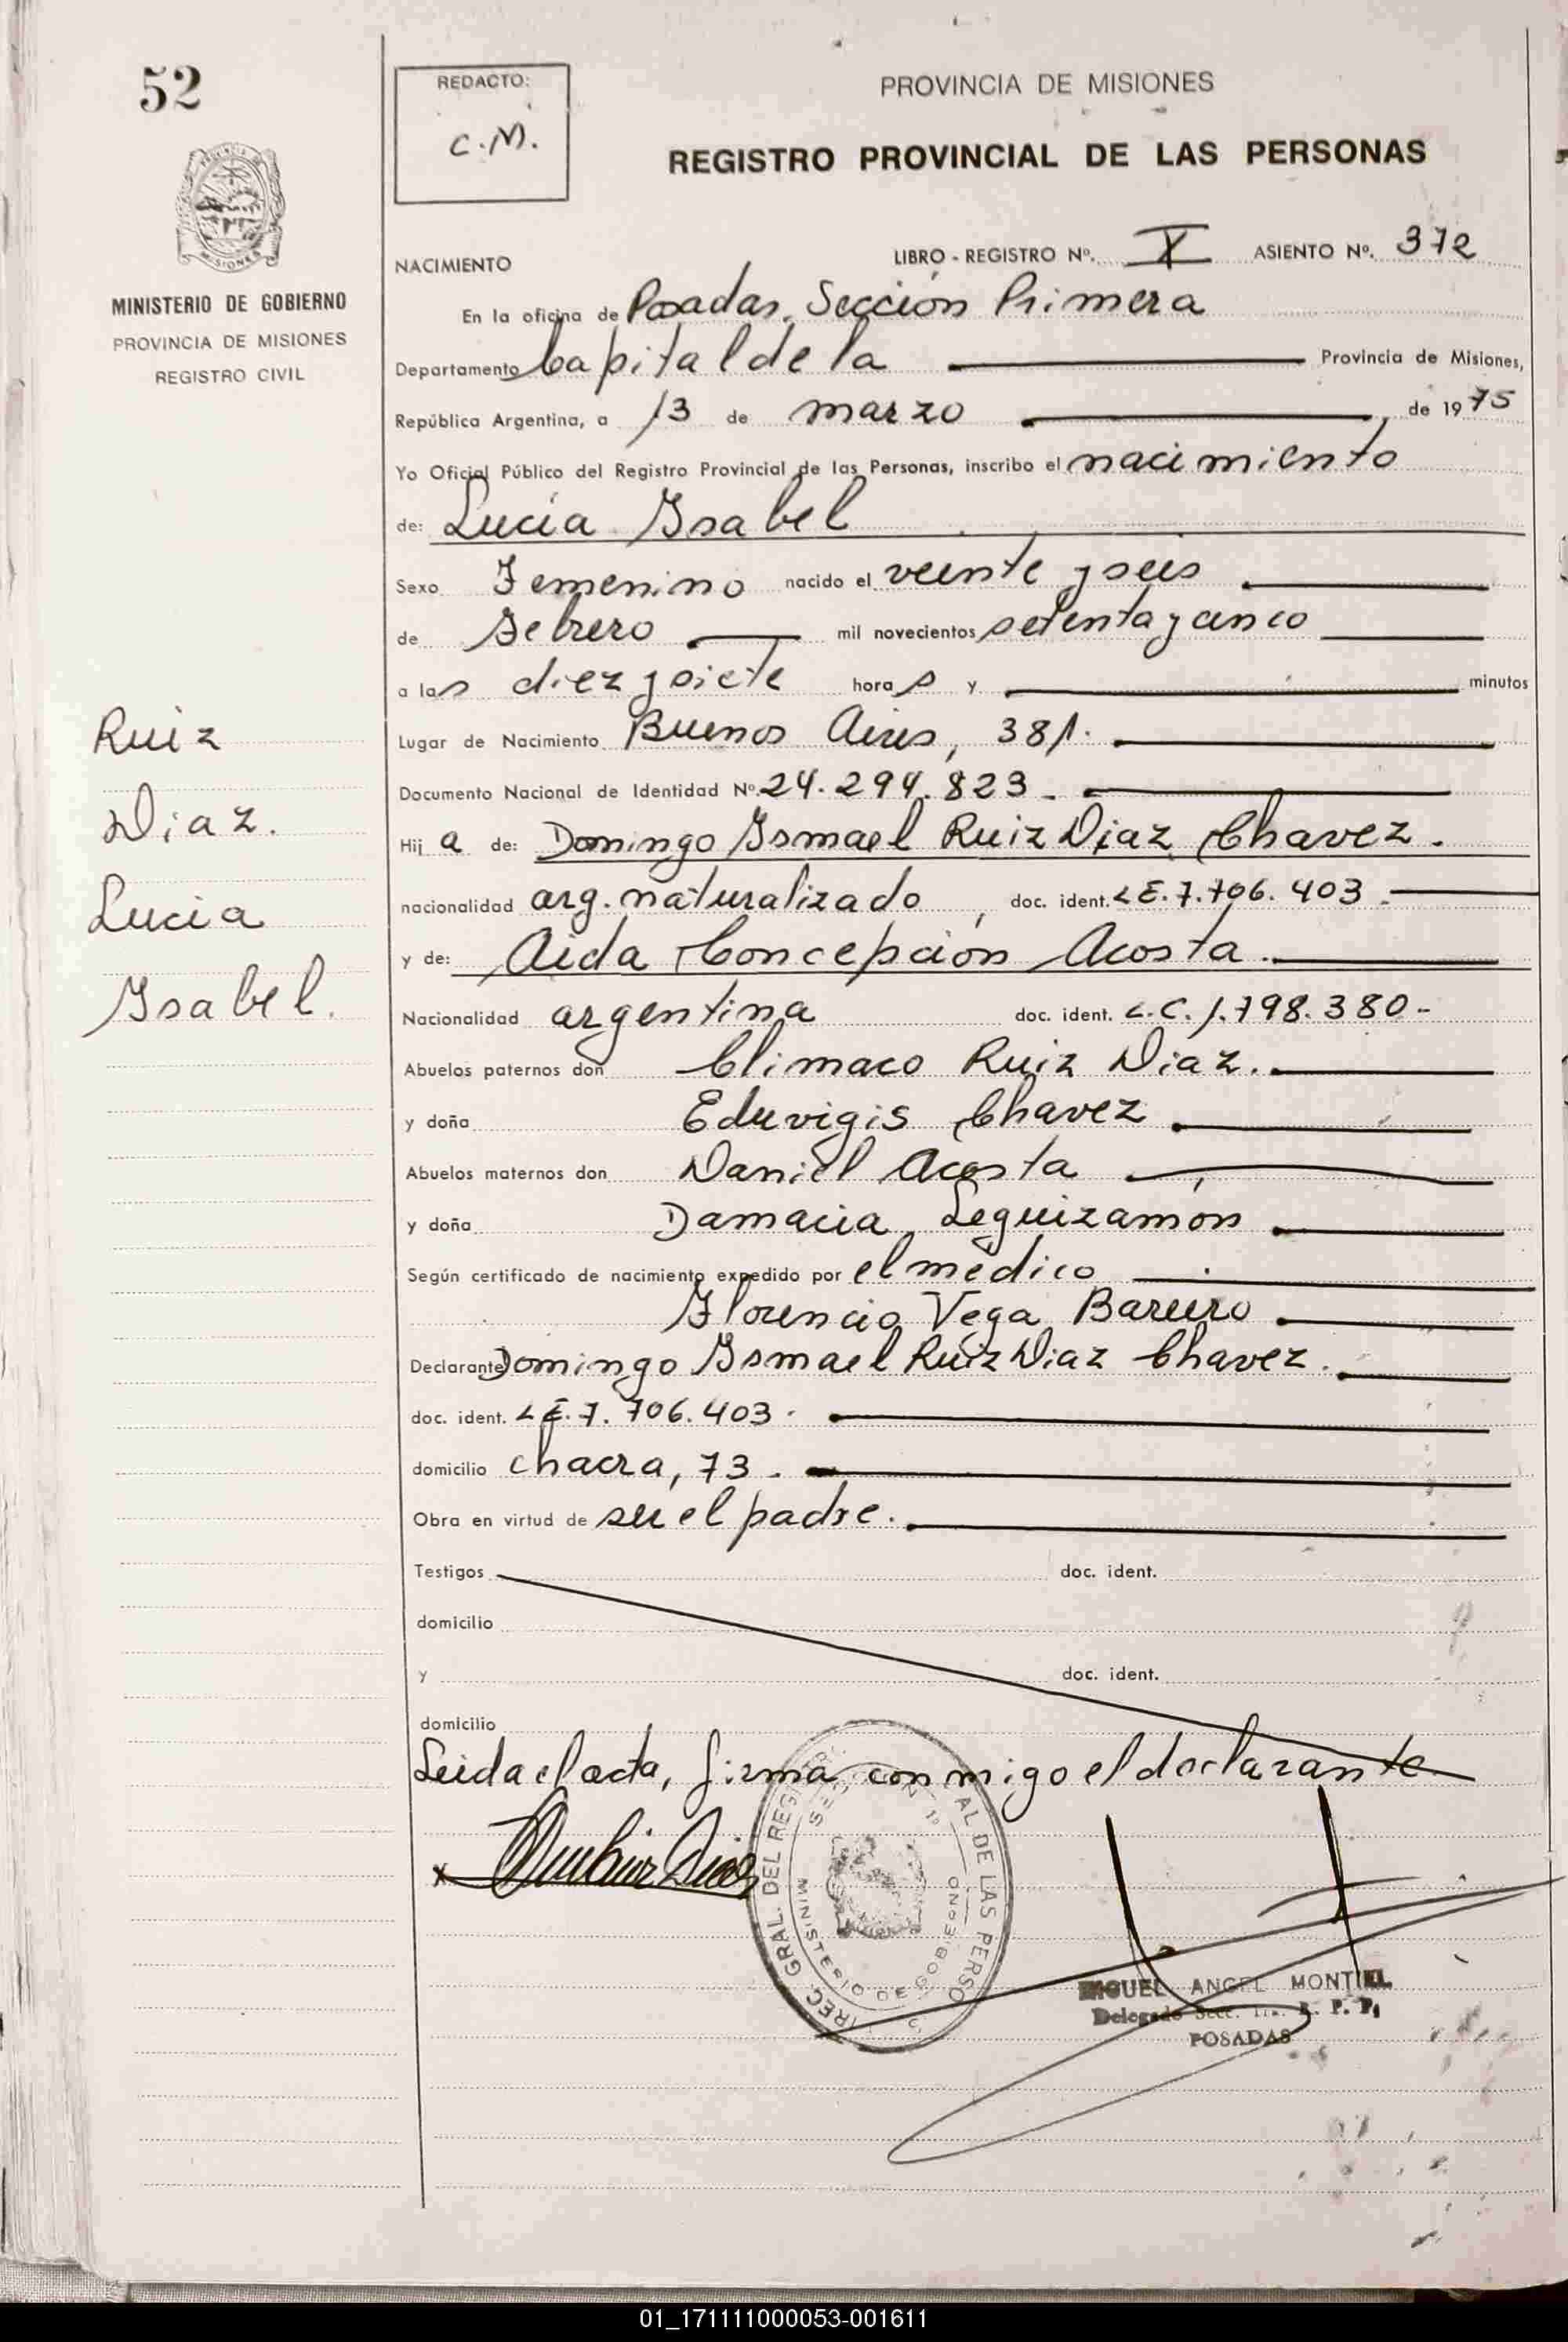 52
REDACTO:
C.M.
PROVINCIA DE MISIONES
REGISTRO PROVINCIAL DE LAS PERSONAS
MINISTERIO DE GOBIERNO
PROVINCIA DE MISIONES
REGISTRO CIVIL
NACIMIENTO LIBRO - REGISTRO Nº. X ASIENTO Nº. 372
En la oficina de Posadas, Sección Primera
Departamento Capital de la Provincia de Misiones,
República Argentina, a 13 de marzo de 1975
Yo Oficial Público del Registro Provincial de las Personas, inscribo el nacimiento
de: Lucía Isabel
Sexo Femenino nacido el veinte y seis
de Febrero mil novecientos setenta y cinco
a las diez y siete horas y minutos
Lugar de Nacimiento Buenos Aires, 381.
Documento Nacional de Identidad Nº. 24.294.823
Hija de: Domingo Ismael Ruiz Diaz Chavez.
nacionalidad arg. naturalizado, doc. ident. L E. 7.706.403
y de: Aida Concepción Acosta.
Nacionalidad argentina doc. ident. L.C. 1.798.380-
Abuelos paternos don Climaco Ruiz Diaz.
y doña Eduvigis Chavez
Abuelos maternos don Daniel Acosta
y doña Damacia Leguizamón
Según certificado de nacimiento expedido por el médico
Florencio Vega Bareiro
Declarante Domingo Ismael Ruiz Diaz Chavez.
doc. ident. L E. 7.706.403.
domicilio chacra, 73.
Obra en virtud de ser el padre.
Testigos doc. ident.
domicilio
y doc. ident.
domicilio
Leida el acta, firma conmigo el declarante
Ruiz
Diaz.
Lucia
Isabel.
MINISTERIO DE GOBIERNO
MIGUEL ANGEL MONTIEL
Delegado Secc. 1ra. R. P. P.
POSADAS
01_171111000053-001611